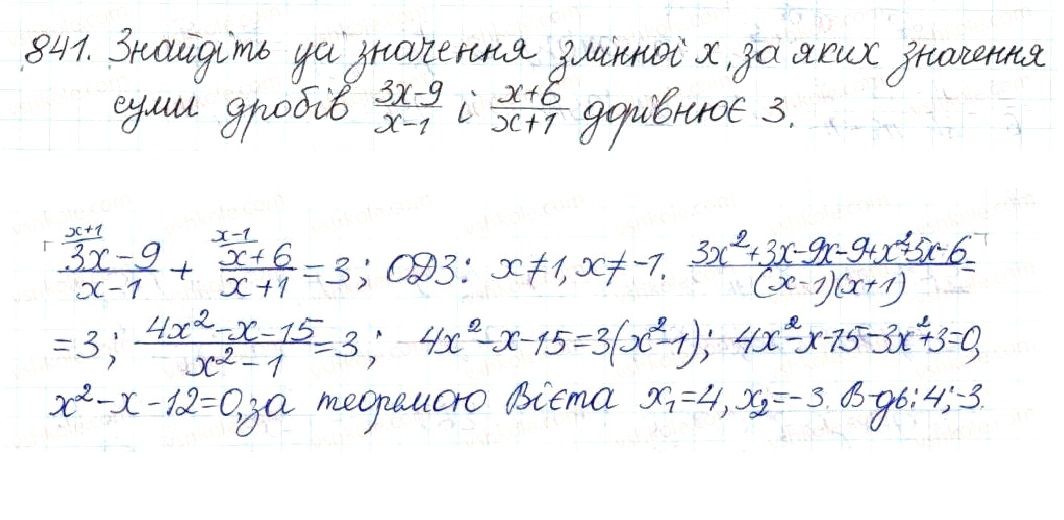 841. Знайдіть усі значення змінної x, за яких значення
суми дробів (3x-9)/(x-1) і (x+6)/(x+1) дорівнює 3.
x+1 x-1
(3x-9)/(x-1) + (x+6)/(x+1) = 3; ОДЗ: x≠1, x≠-1. (3x²+3x-9x-9+x²+5x-6)/((x-1)(x+1)) =
= 3; (4x²-x-15)/(x²-1) = 3; 4x²-x-15=3(x²-1); 4x²-x-15-3x²+3=0,
x²-x-12=0, за теоремою Вієта x₁=4, x₂=-3. В-дь: 4; -3.